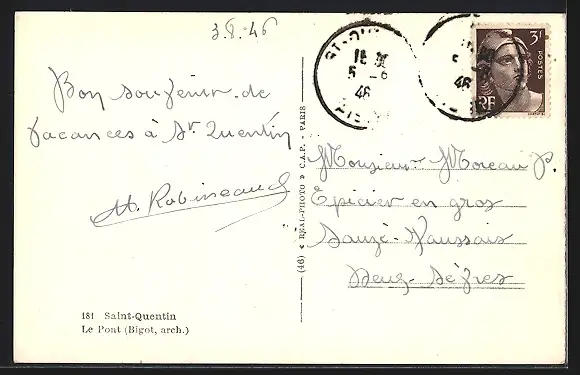 3.8.46
Bon souvenir de
Vacances à St Quentin
M. Robineaud
181 Saint-Quentin
Le Pont (Bigot, arch.)
(46) « REAL-PHOTO » C.A.P. - PARIS
ST-QU
18 30
5 - 8
46
AISNE
3F
POSTES
RF
Monsieur Moreau P.
Epicier en gros
Sauzé-Vaussais
Deux-Sèvres